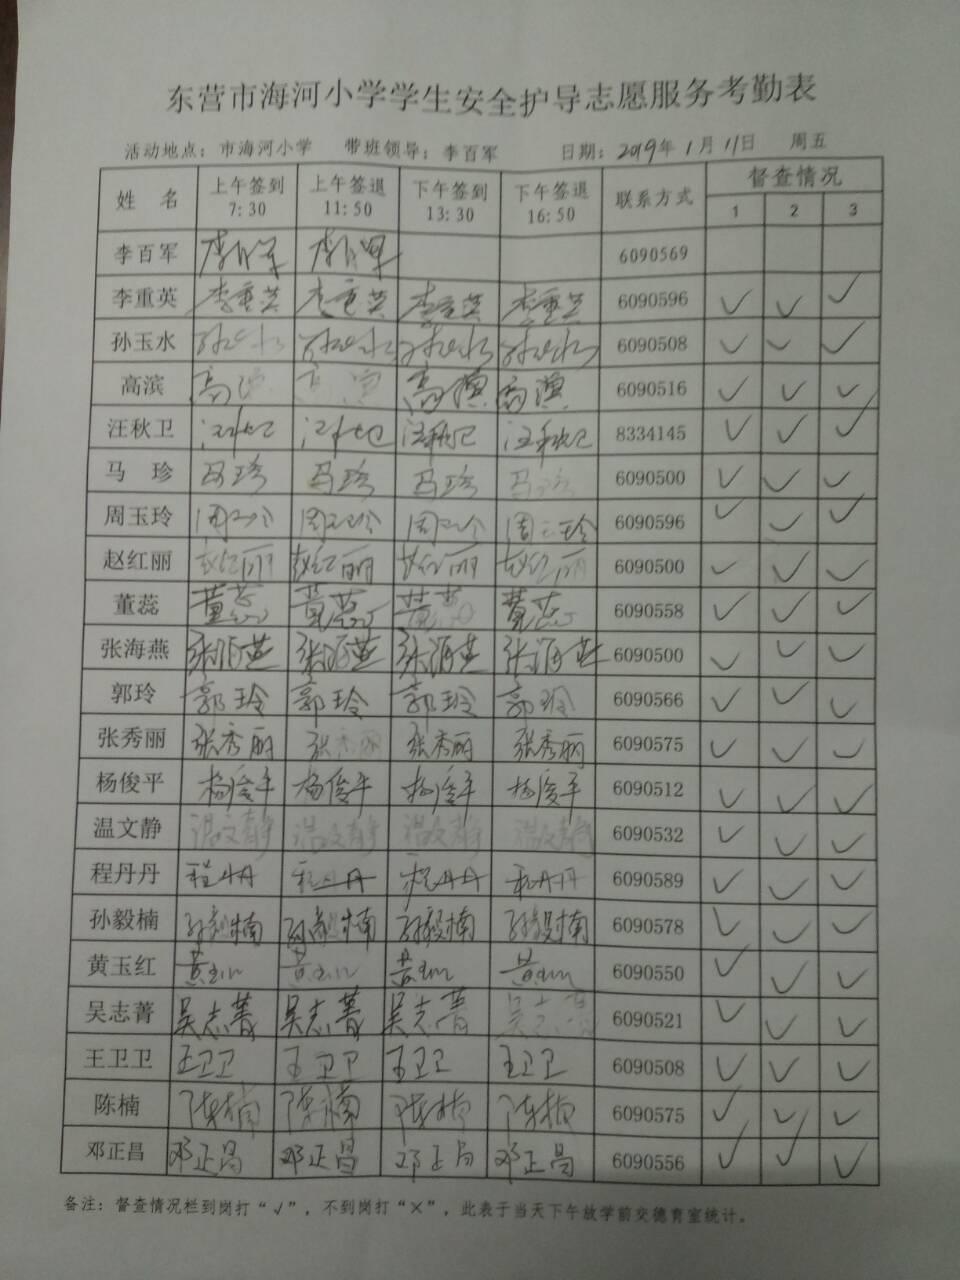 东营市海河小学学生安全护导志愿服务考勤表
活动地点：市海河小学 带班领导：李百军 日期：2019年1月11日 周五
姓 名 上午签到 7:30 上午签退 11:50 下午签到 13:30 下午签退 16:50 联系方式 督查情况 1 2 3
李百军 李百军 李百军 6090569
李重英 李重英 李重英 李重英 李重英 6090596 ✓ ✓ ✓
孙玉水 孙玉水 孙玉水 孙玉水 孙玉水 6090508 ✓ ✓ ✓
高滨 高滨 高滨 高滨 高滨 6090516 ✓ ✓ ✓
汪秋卫 汪秋卫 汪秋卫 汪秋卫 汪秋卫 8334145 ✓ ✓ ✓
马 珍 马珍 马珍 马珍 马珍 6090500 ✓ ✓ ✓
周玉玲 周玉玲 周玉玲 周玉玲 周玉玲 6090596 ✓ ✓ ✓
赵红丽 赵红丽 赵红丽 赵红丽 赵红丽 6090500 ✓ ✓ ✓
董蕊 董蕊 董蕊 董蕊 董蕊 6090558 ✓ ✓ ✓
张海燕 张海燕 张海燕 张海燕 张海燕 6090500 ✓ ✓ ✓
郭玲 郭玲 郭玲 郭玲 郭玲 6090566 ✓ ✓ ✓
张秀丽 张秀丽 张秀丽 张秀丽 张秀丽 6090575 ✓ ✓ ✓
杨俊平 杨俊平 杨俊平 杨俊平 杨俊平 6090512 ✓ ✓ ✓
温文静 温文静 温文静 温文静 温文静 6090532 ✓ ✓ ✓
程丹丹 程丹丹 程丹丹 程丹丹 程丹丹 6090589 ✓ ✓ ✓
孙毅楠 孙毅楠 孙毅楠 孙毅楠 孙毅楠 6090578 ✓ ✓ ✓
黄玉红 黄玉红 黄玉红 黄玉红 黄玉红 6090550 ✓ ✓ ✓
吴志菁 吴志菁 吴志菁 吴志菁 吴志菁 6090521 ✓ ✓ ✓
王卫卫 王卫卫 王卫卫 王卫卫 王卫卫 6090508 ✓ ✓ ✓
陈楠 陈楠 陈楠 陈楠 陈楠 6090575 ✓ ✓ ✓
邓正昌 邓正昌 邓正昌 邓正昌 邓正昌 6090556 ✓ ✓ ✓
备注：督查情况栏到岗打“√”，不到岗打“×”，此表于当天下午放学前交德育室统计。